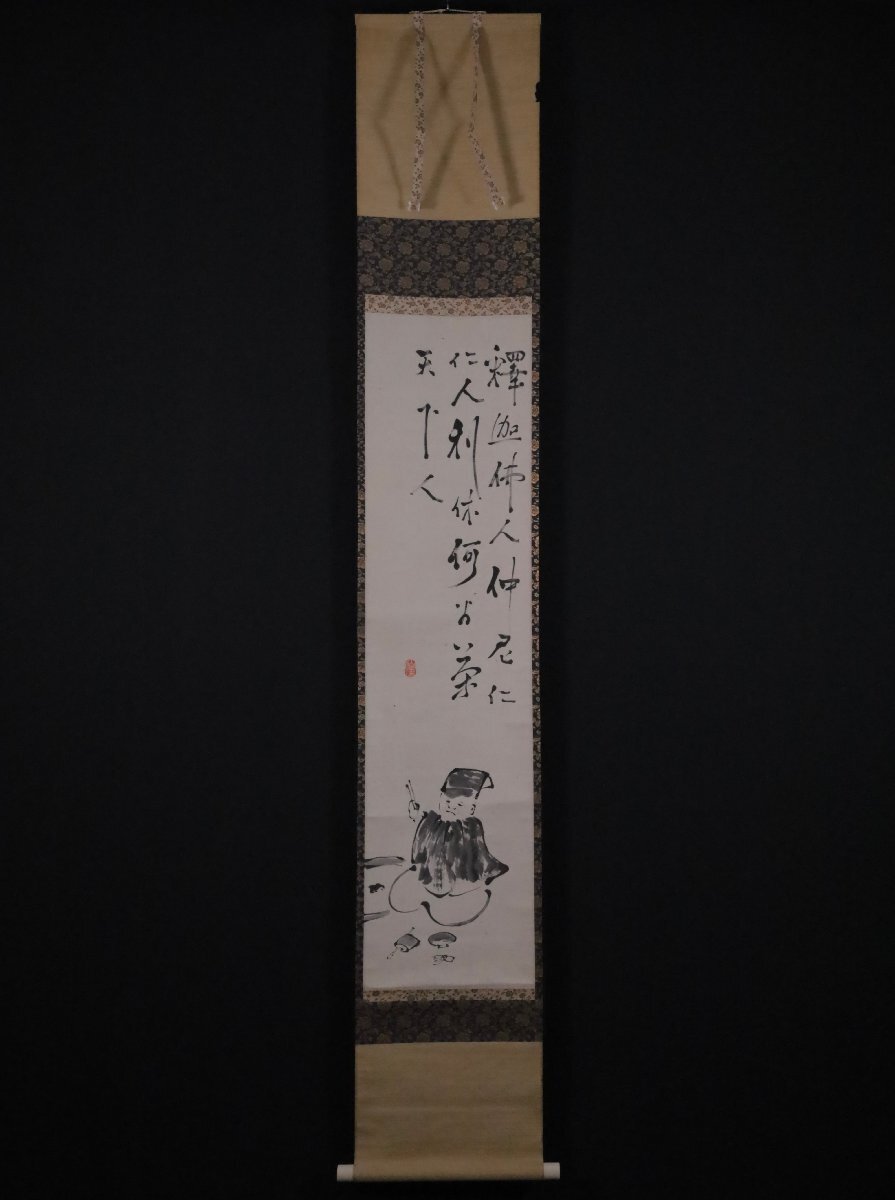 釋迦佛人仲尼仁
仁人利休何茶
天下人